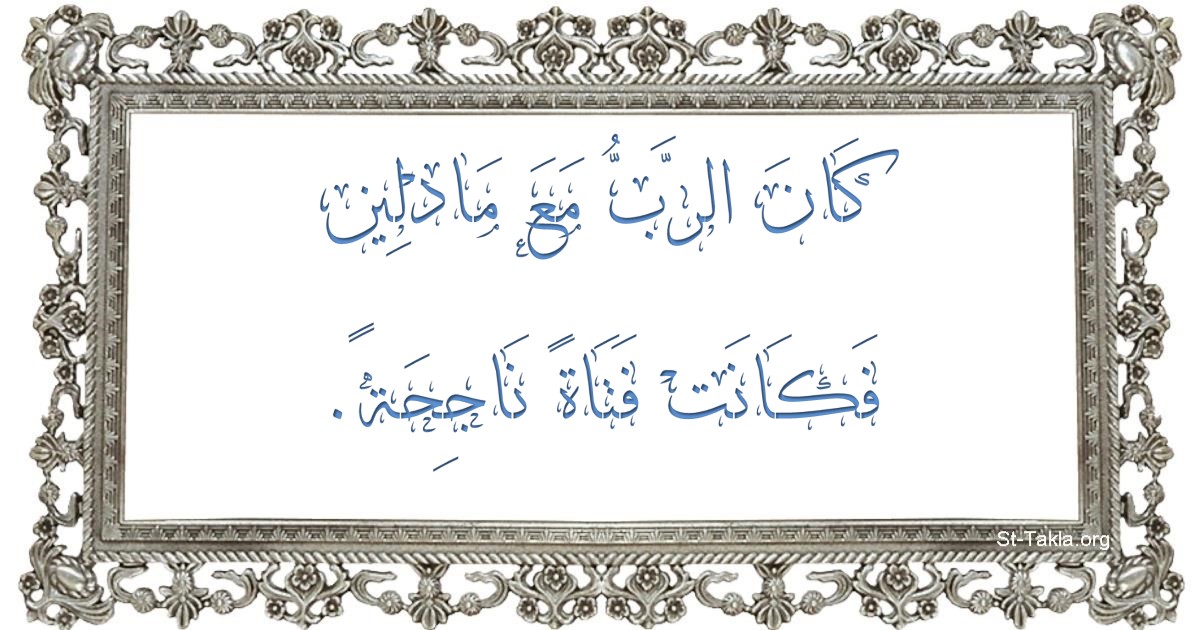 كَانَ الرَّبُّ مَعَ مَادلِين
فَكَانَت فَتَاةً نَاجِحَةً.
St-Takla.org